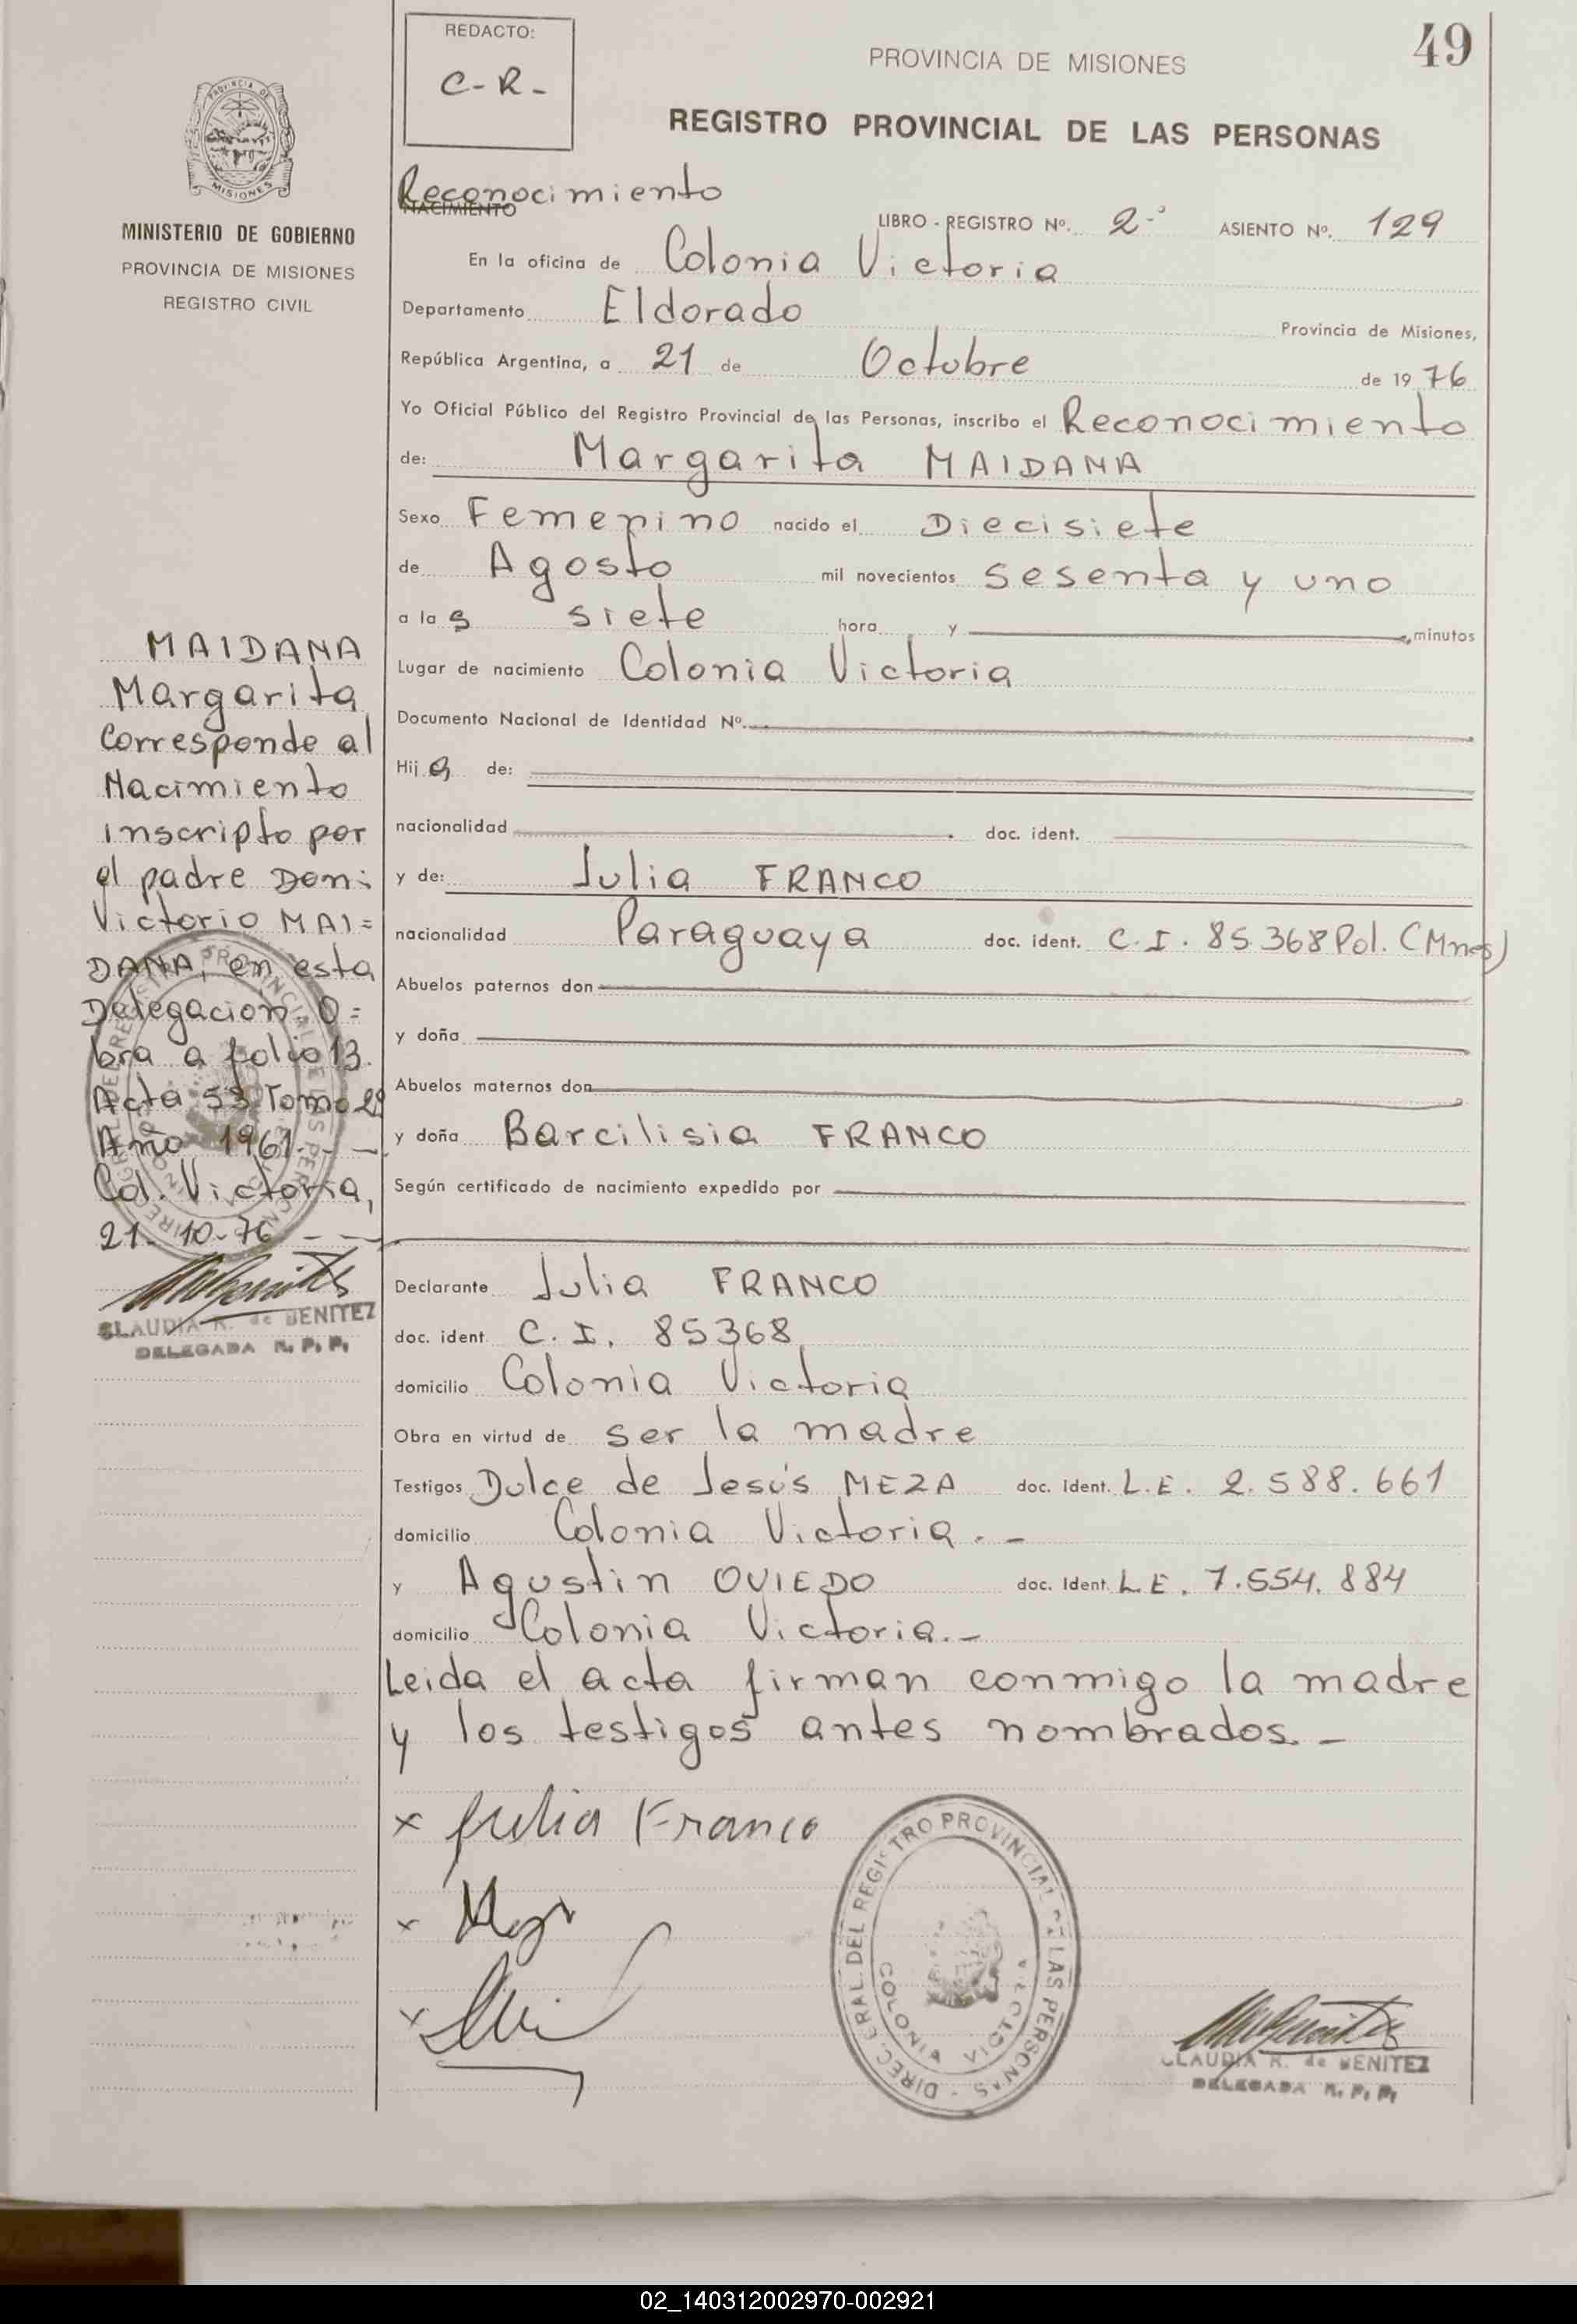 49
REDACTO:
C-R-
PROVINCIA DE MISIONES
REGISTRO PROVINCIAL DE LAS PERSONAS
PROVINCIA DE
MISIONES
MINISTERIO DE GOBIERNO
PROVINCIA DE MISIONES
REGISTRO CIVIL
Reconocimiento
NACIMIENTO
LIBRO - REGISTRO Nº. 2-º ASIENTO Nº. 129
En la oficina de Colonia Victoria
Departamento Eldorado Provincia de Misiones,
República Argentina, a 21 de Octubre de 1976
Yo Oficial Público del Registro Provincial de las Personas, inscribo el Reconocimiento
de: Margarita MAIDANA
Sexo Femenino nacido el Diecisiete
de Agosto mil novecientos sesenta y uno
a las siete hora y minutos
Lugar de nacimiento Colonia Victoria
Documento Nacional de Identidad Nº.
Hija de:
nacionalidad doc. ident.
y de: Julia FRANCO
nacionalidad Paraguaya doc. ident. C.I. 85.368 Pol. (Mnes)
Abuelos paternos don
y doña
Abuelos maternos don
y doña Barcilisia FRANCO
Según certificado de nacimiento expedido por
Declarante Julia FRANCO
doc. ident. C.I. 85368
domicilio Colonia Victoria
Obra en virtud de ser la madre
Testigos Dulce de Jesús MEZA doc. Ident. L.E. 2.588.661
domicilio Colonia Victoria.-
y Agustin OVIEDO doc. Ident. L.E. 7.554.884
domicilio Colonia Victoria.-
Leida el acta firman conmigo la madre
y los testigos antes nombrados.-
x Julia Franco
x
x
DIREC. GRAL. DEL REGISTRO PROVINCIAL DE LAS PERSONAS -
COLONIA VICTORIA
CLAUDIA R. de BENITEZ
DELEGADA R. P. P.
MAIDANA
Margarita
Corresponde al
Nacimiento
inscripto por
el padre Don:
Victorio MAI=
DANA, en esta
Delegacion. O=
bra a folio 13.
Acta 53 Tomo 2º
Año 1961.--
Col. Victoria,
21-10-76--
CLAUDIA R. de BENITEZ
DELEGADA R. P. P.
02_140312002970-002921